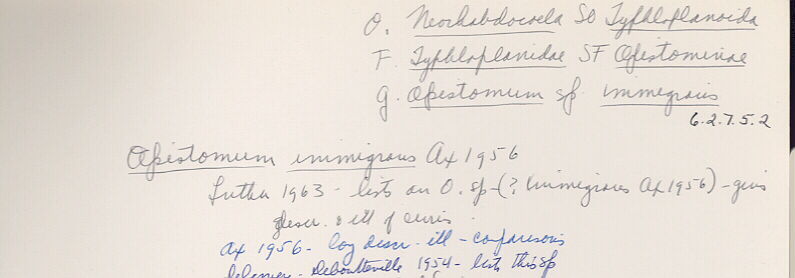 O. Neorhabdocoela SO Typhloplanoida
F. Typhloplanidae SF Opistominae
g. Opistomum sp immigrans
6.2.7.5.2
Opistomum immigrans Ax 1956
Luther 1963 - lists an O. sp - (? immigrans Ax 1956) - gives
descr. & ill of cirris.
Ax 1956 - log descr - ill - comparisons
Delamare - Deboutteville 1954 - lists this sp